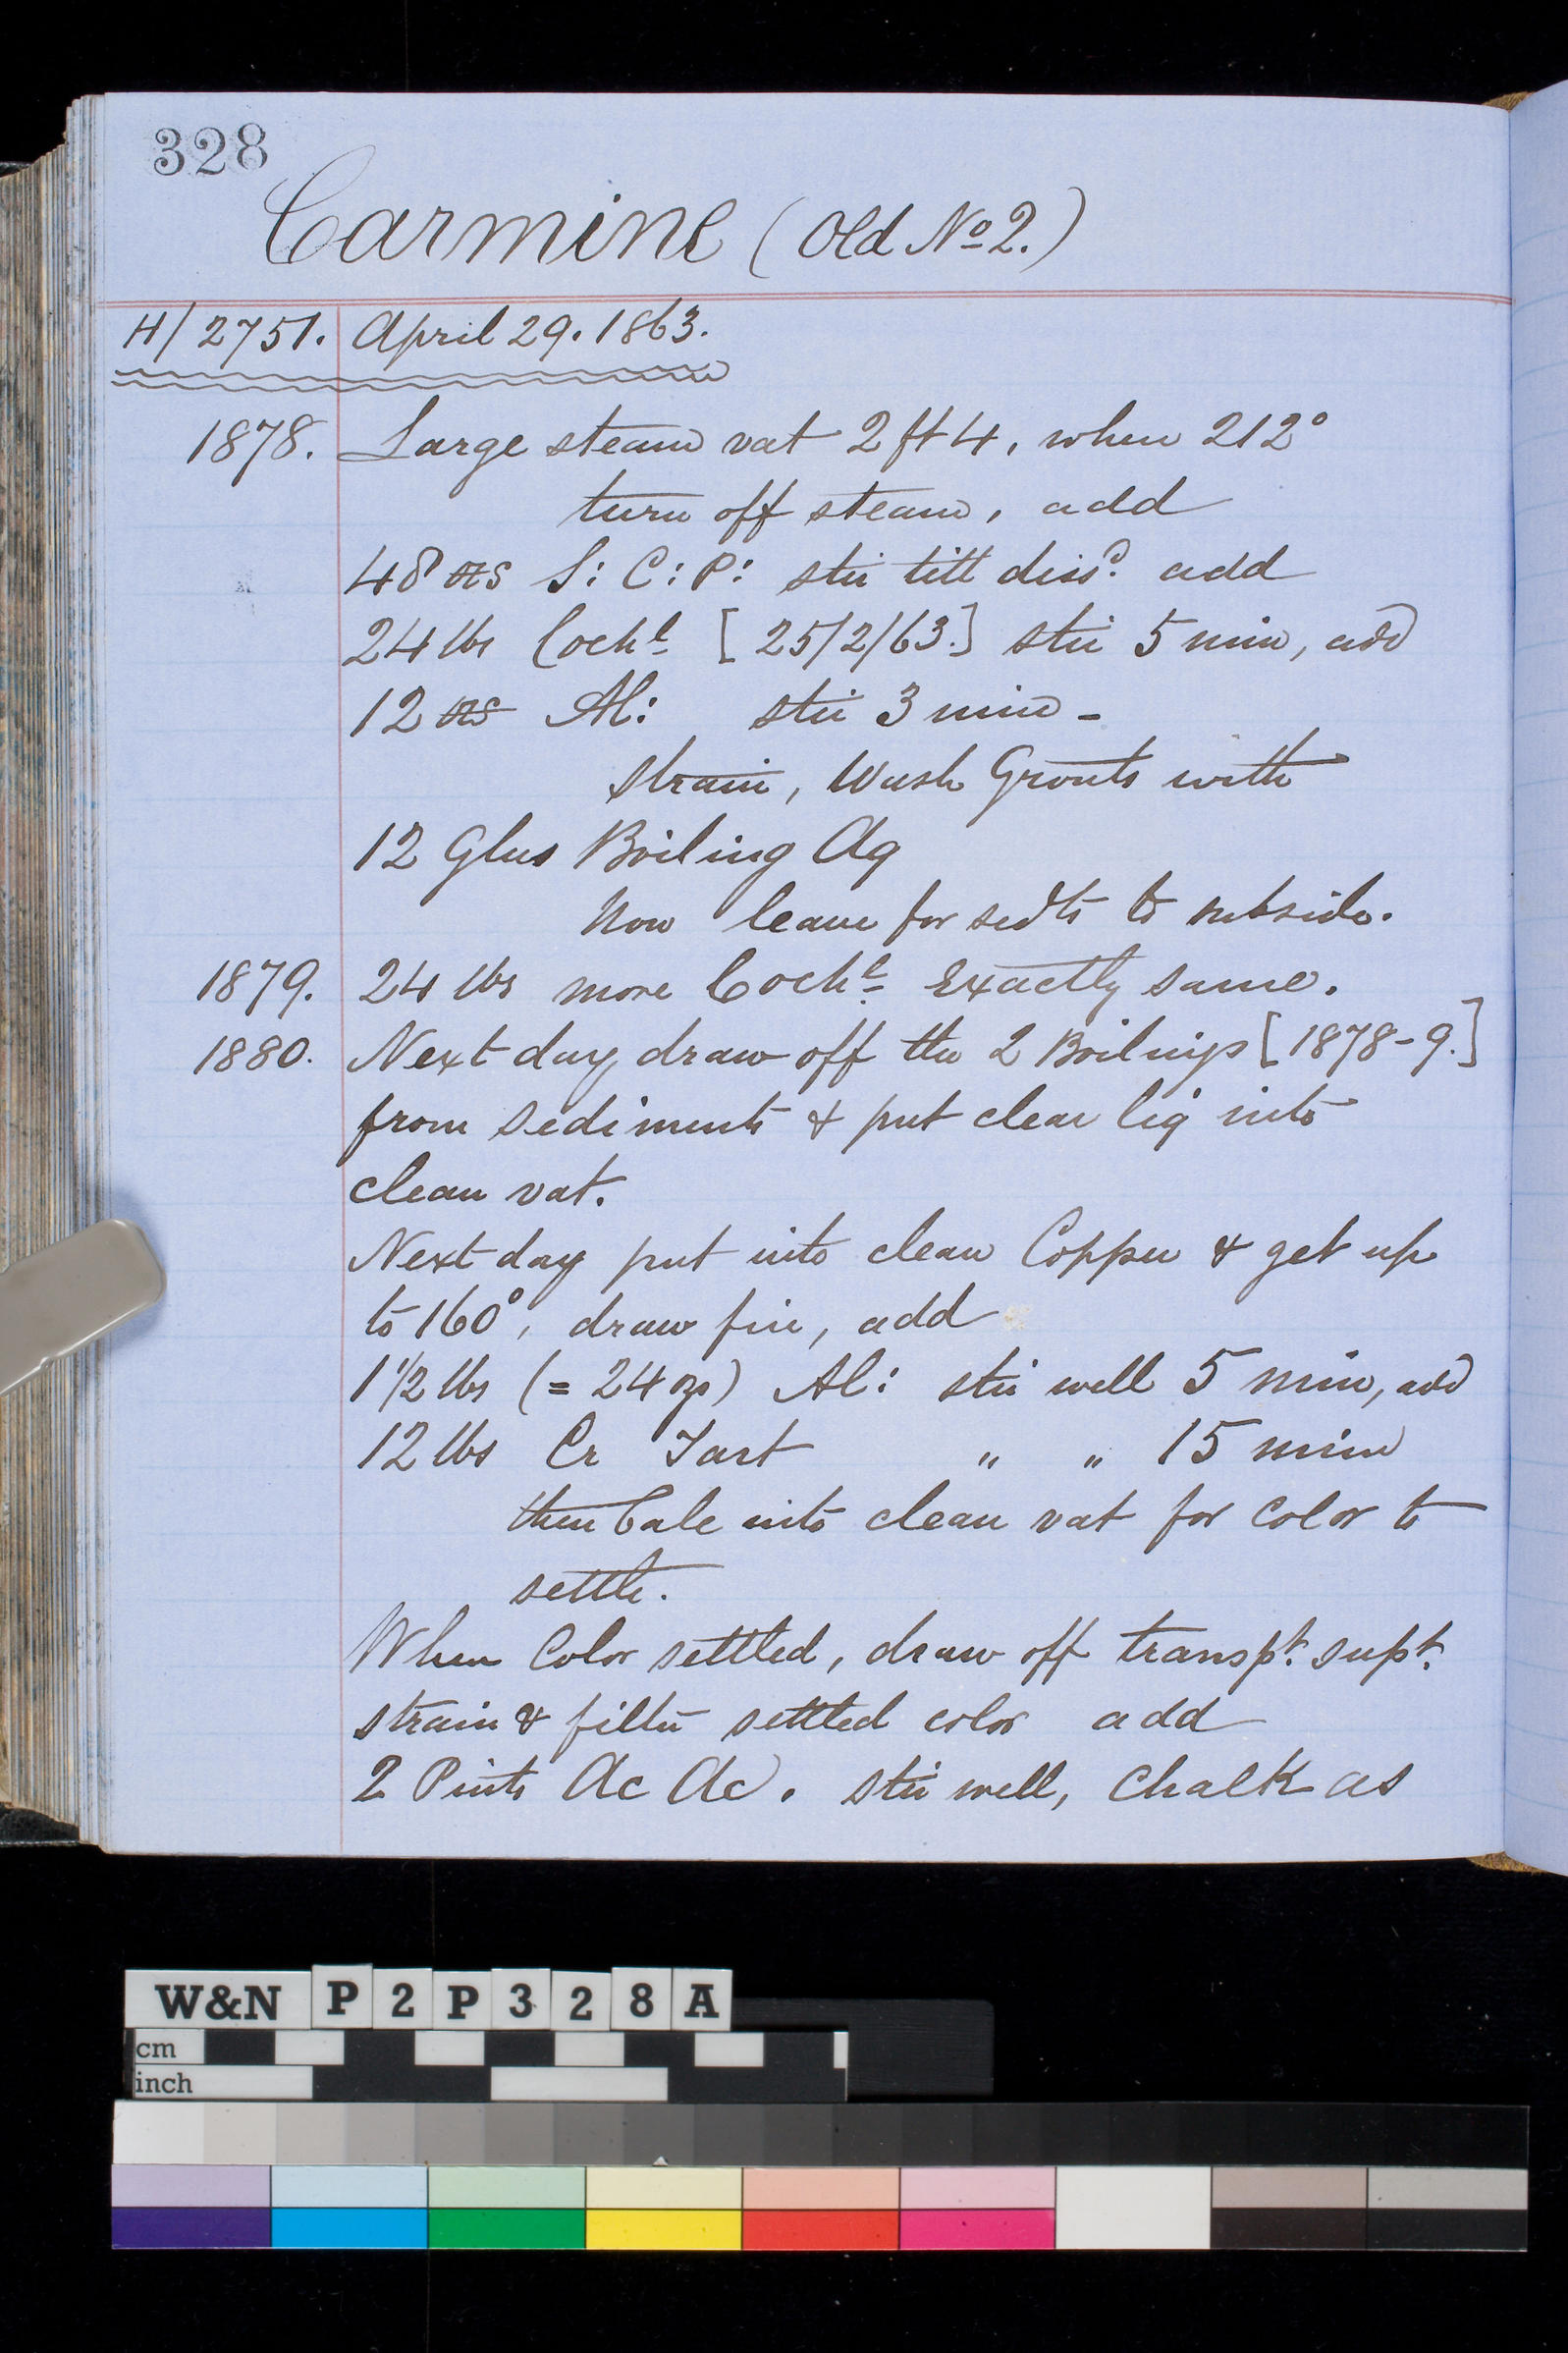 328
Carmine (Old No 2.)
H/2751. April 29. 1863.
1878. Large steam vat 2 ft 4, when 212°
turn off steam, add
48 ozs S: C: P: stir till dissd. add
24 lbs Cochl [25/2/63.] stir 5 min, add
12 ozs Al: stir 3 min -
strain, Wash Grouts with
12 Glns Boiling Aq
Now leave for sedts to subside.
1879. 24 lbs more Cochl Exactly same.
1880. Next day, draw off the 2 Boilings [1878-9.]
from sediments & put clear liq into
clean vat.
Next day put into clean Copper & get up
to 160°, draw fire, add
1 1/2 lbs (= 24 ozs) Al: stir well 5 min, add
12 lbs Cr Tart " " 15 min
then bale into clean vat for color to
settle.
When Color settled, draw off transpt. supt.
strain & filter settled color add
2 Pints Ac Ac. stir well, chalk as
W&N P2P328A
cm
inch